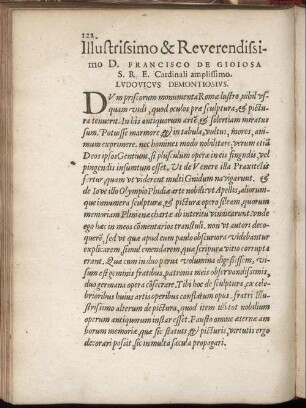 122
Illustrissimo & Reverendissi-
mo D. FRANCISCO DE GIOIOSA
S. R. E. Cardinali amplissimo.
LVDOVICVS DEMONTIOSIVS.
DVm priscorum monumenta Romæ lustro, nihil us-
quam vidi, quod oculos præ sculptura, & pictu-
ra tenuerit. In his antiquorum artē, & solertiam miratur
sum. Potuisse marmore & in tabula, vultus, mores, ani-
mum exprimere. nec homines modo nobilitare, verum etiā
Deos ipsos Gentium, si plusculum operæ in eis fingēdis, vel
pingendis insumtum esset. Ut de Venere illa Praxitelis
fertur, quam ut viderent multi Gnidum navigarunt. &
de Iove illo Olympio Phidiæ arte nobili: ut Apellis, aliorum-
que innumera sculpturæ, & picturæ opera sileam, quorum
memoriam Plinianæ chartæ ab interitu vindicarunt. unde
ego hæc in meos cōmentarios transtuli. non ut autori deco-
quorē, sed ut quæ apud eum paulo obscuriora videbantur
explicarem, simul emendarem, quæ scriptura vitio corrupta
erant. Quæ cum in duo parva volumina digessissem, vi-
sum est geminis fratribus, patronis meis observandissimis,
duo germana opera cōsecrare. Tibi hoc de sculptura, ex ce-
lebrioribus huius artis operibus conflatum opus. fratri Illu-
strissimo alterum de pictura, quod item illi tot nobilium
operum antiquorum instar esset. Fausto omine æternæ am-
borum memoriæ, quæ sic statuis & picturis, virtutis ergo
decorari possit, sic in multa sæcula propagari.